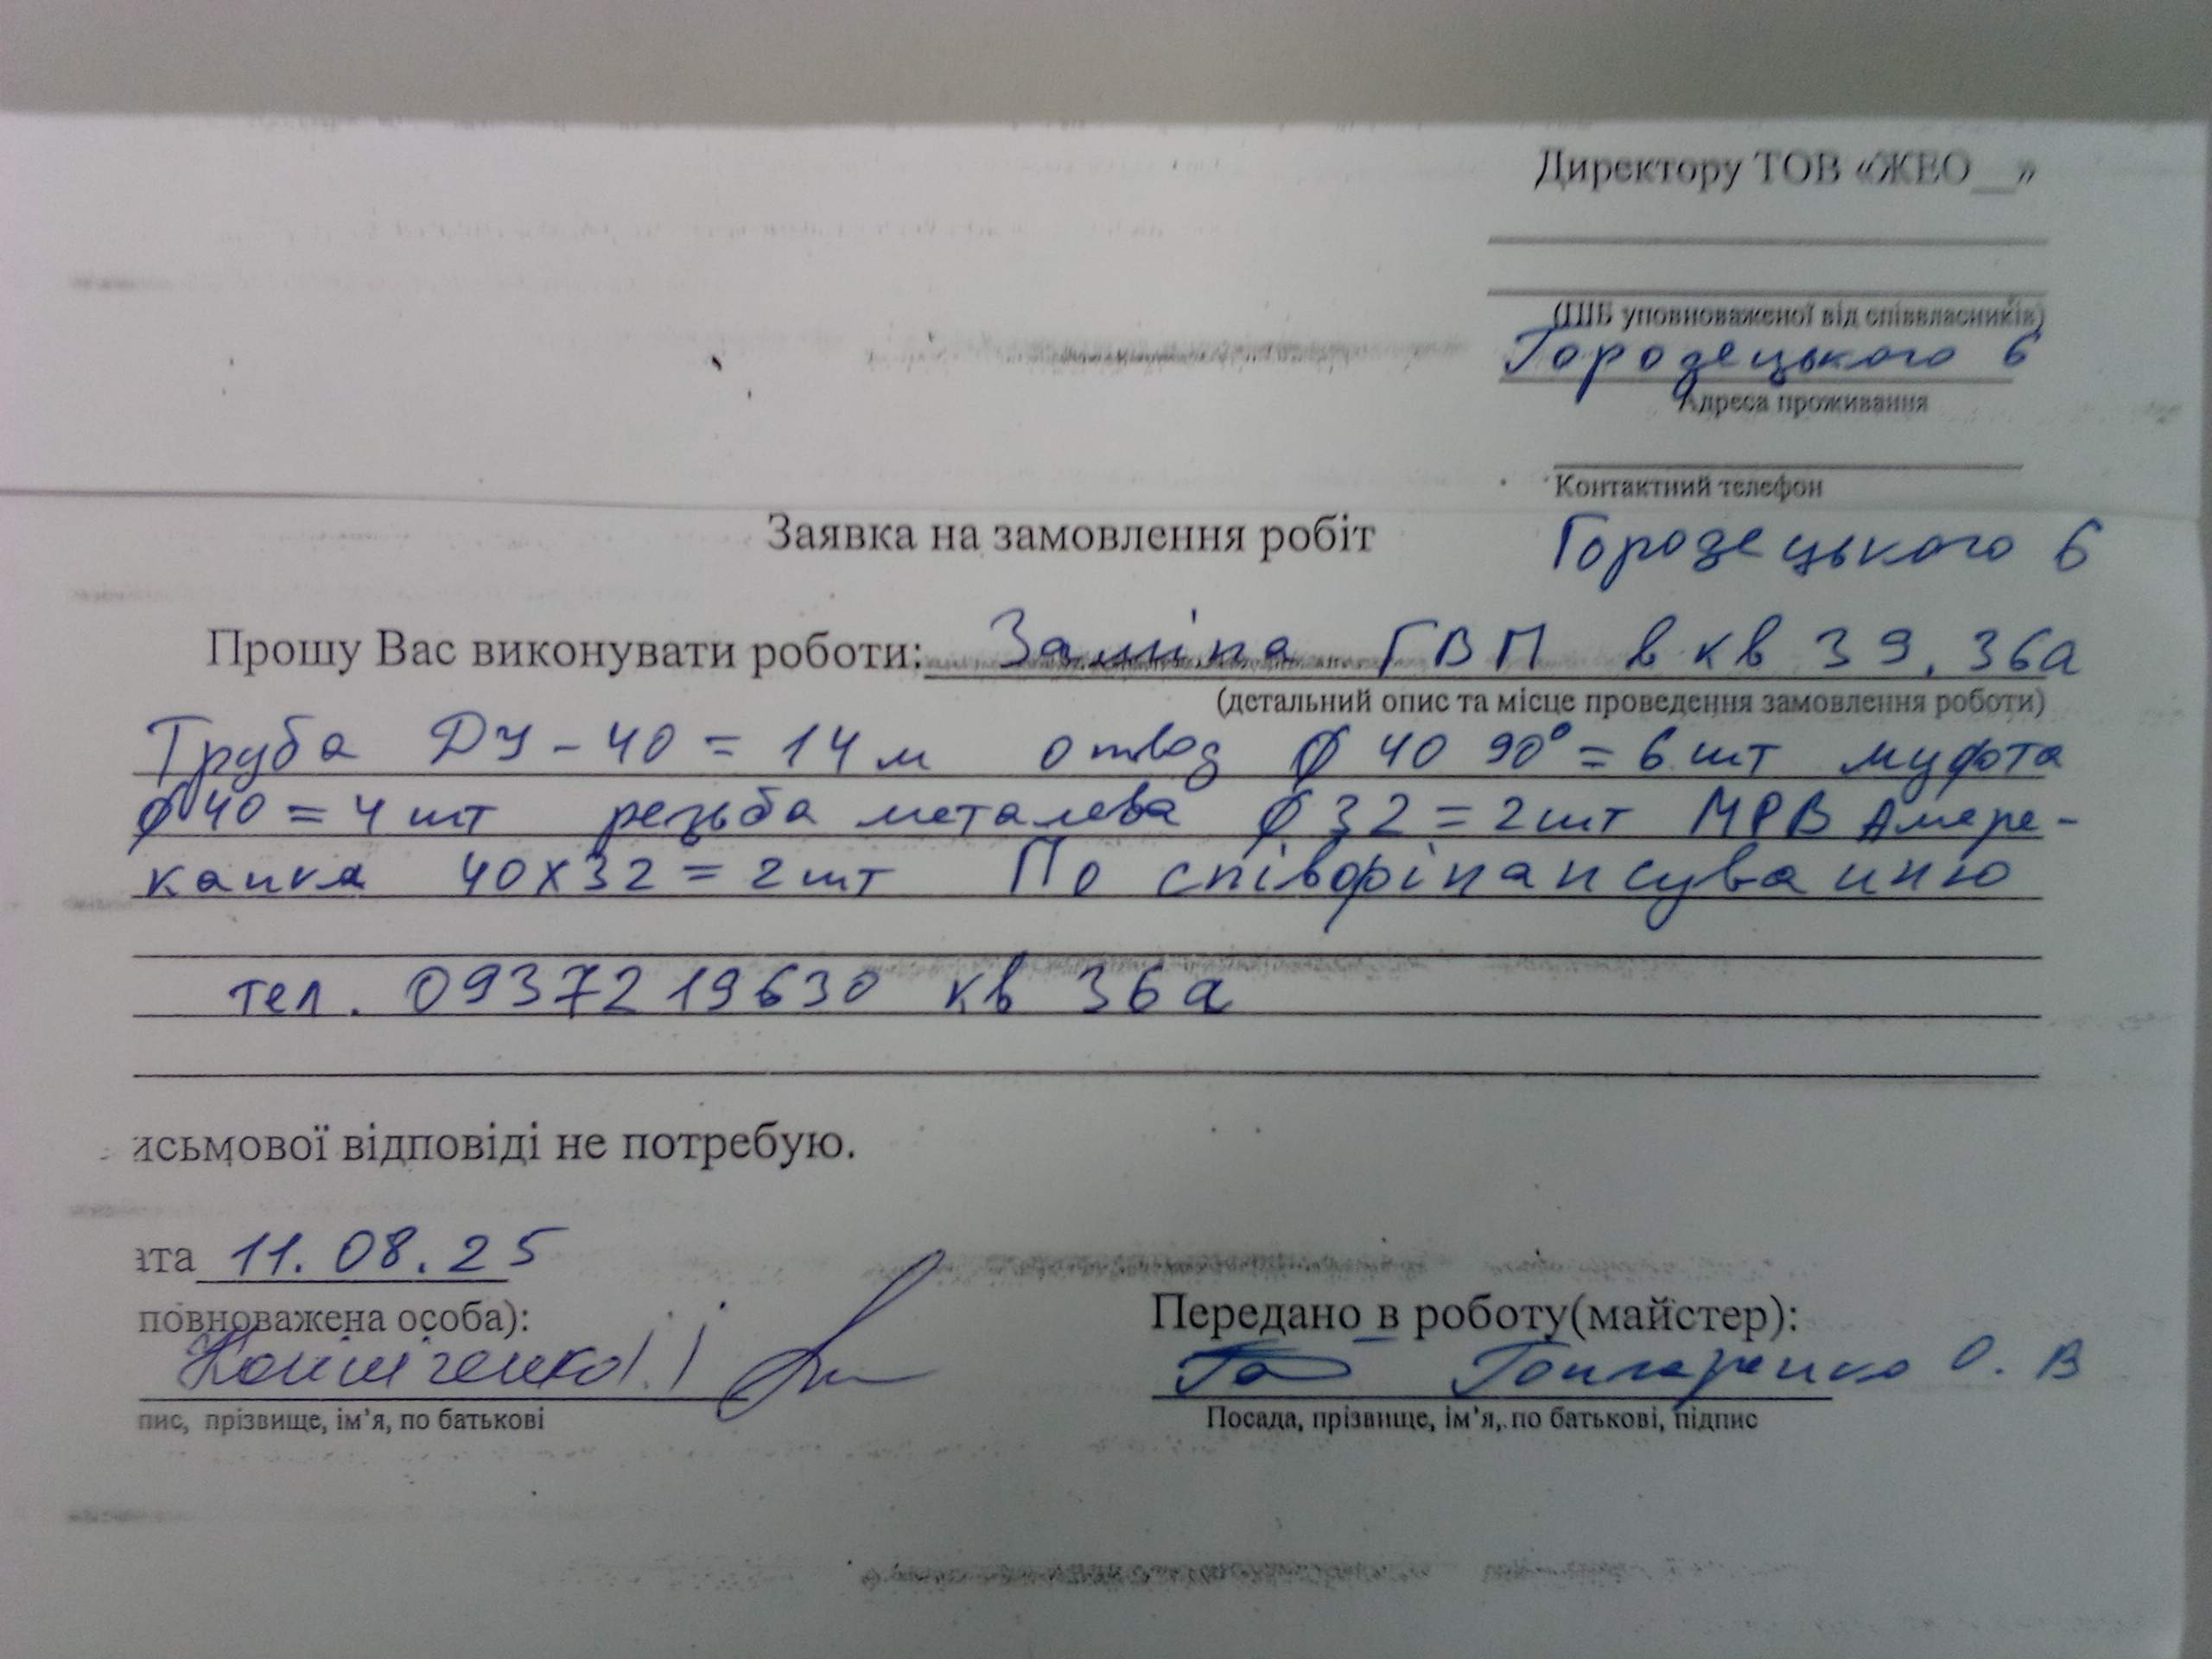 Директору ТОВ «ЖЕО__»
(ПІБ уповноваженої від співвласників)
Городецького 6
Адреса проживання
Контактний телефон
Заявка на замовлення робіт
Городецького 6
Прошу Вас виконувати роботи: Заміна ГВП в кв 39, 36а
(детальний опис та місце проведення замовлення роботи)
Труба ДУ-40 = 14 м отвод ф 40 90° = 6 шт муфта
ф 40 = 4 шт резьба металева ф 32 = 2 шт МРВ Амере-
канка 40х32 = 2 шт По співфінансуванню
тел. 0937219630 кв 36а
исьмової відповіді не потребую.
ата 11.08.25
повноважена особа):
Передано в роботу(майстер):
Гончаренко О. В
пис, прізвище, ім'я, по батькові
Посада, прізвище, ім'я, по батькові, підпис